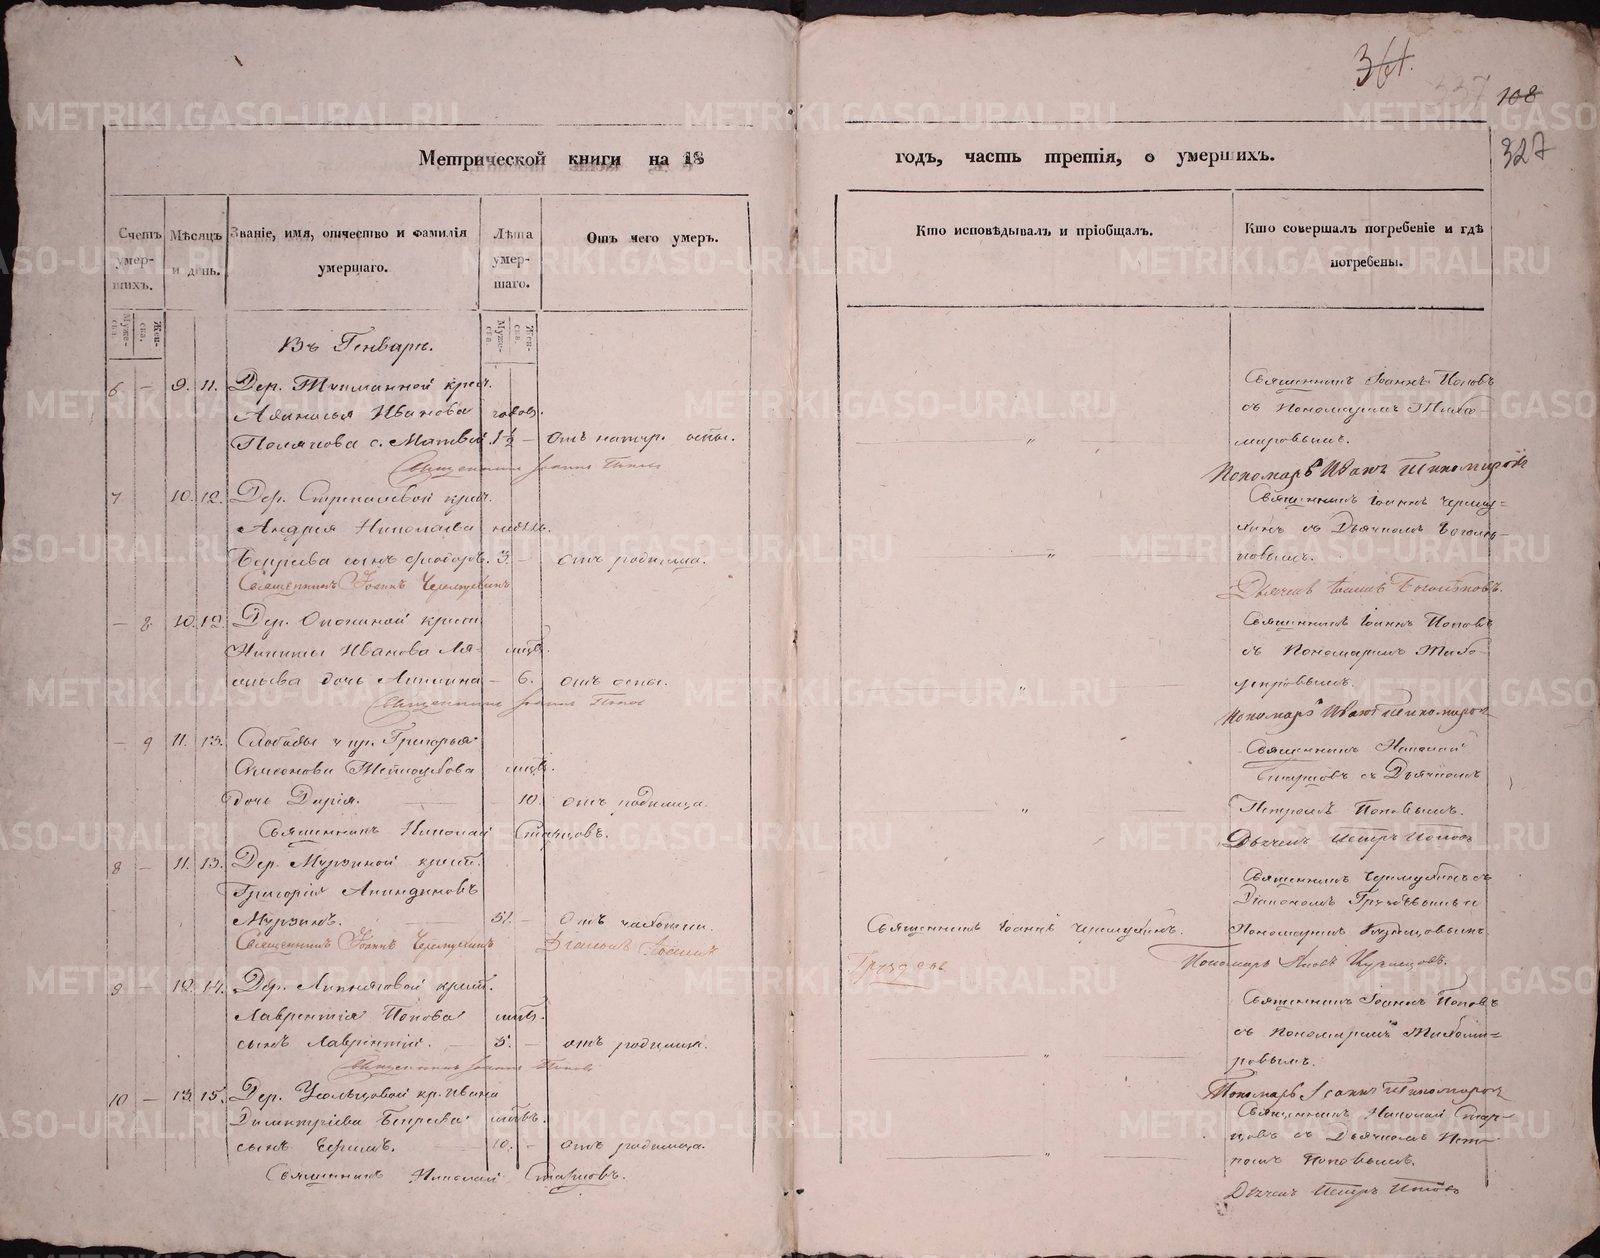 364.
108
327
Метрической книги на 18
годъ, часть третія, о умершихъ.
Счетъ умер-шихъ.
Муже-ска.
Жен-ска.
Мѣсяцъ и день.
Званіе, имя, отчество и фамилія умершаго.
Лѣта умер-шаго.
Муже-ска
Жен-ска.
Отъ чего умеръ.
Кто исповѣдывалъ и пріобщалъ.
Кто совершалъ погребеніе и гдѣ погребены.
Въ Генварѣ.
6 — 9. 11. Дер. крест.
Иванова годов.
Полякова с. Матвѣй. 1½ — отъ натур. оспы.
Священникъ Іоаннъ Поповъ
Священникъ Іоаннъ Поповъ
съ Пономаремъ Тихо-
мировымъ.
Пономарь Иванъ Тихомировъ
7 10. 12. Дер. крест.
Андрея Николаева недѣль.
сынъ Ѳеодоръ. 3. — отъ родимца.
Священникъ Іоаннъ Черемухинъ
Священникъ Іоаннъ Черему=
хинъ съ Дьячкомъ Боголѣ-
повымъ.
Дьячекъ Боголѣповъ.
— 8. 10. 12. Дер. крест.
Никиты Иванова Ля- лѣтъ.
дочь — 6. отъ оспы.
Священникъ Іоаннъ Поповъ
Священникъ Іоаннъ Поповъ
съ Пономаремъ Тихо-
мировымъ.
Пономарь Иванъ Тихомировъ
— 9 11. 13. Слободы Григорья
Симеонова лѣтъ.
дочь Дарія. — 10. отъ родимца.
Священникъ Николай Старцовъ.
Священникъ Николай
Старцовъ съ Дьячкомъ
Петромъ Поповымъ.
Дьячекъ Петръ Поповъ
8 — 11. 13. Дер. Мурзиной крест.
Григорій Акиндиновъ
Мурзинъ. 51. — отъ чахотки.
Священникъ Іоаннъ Черемухинъ Діаконъ
Священникъ Іоаннъ Черемухинъ.
Груздевъ
Священникъ Черемухинъ съ
Діакономъ Груздевымъ и
Пономаремъ Кузнецовымъ.
Пономарь Яковъ Кузнецовъ.
9 — 12. 14. Дер. крест.
Лаврентія Попова лѣтъ.
сынъ Лаврентій. — 5. — отъ родимца.
Священникъ Іоаннъ Поповъ
Священникъ Іоаннъ Поповъ
съ Пономаремъ Тихоми=
ровымъ.
Пономарь Іоаннъ Тихомировъ
10 — 13. 15. Дер. Усольцовой кр. Ивана
Димитріева
сынъ Ефимъ. — 10. — отъ родимца.
Священникъ Николай Старцовъ.
Священникъ Николай Стар-
цовъ съ Дьячкомъ Пет-
ромъ Поповымъ.
Дьячекъ Петръ Поповъ
METRIKI.GASO-URAL.RU